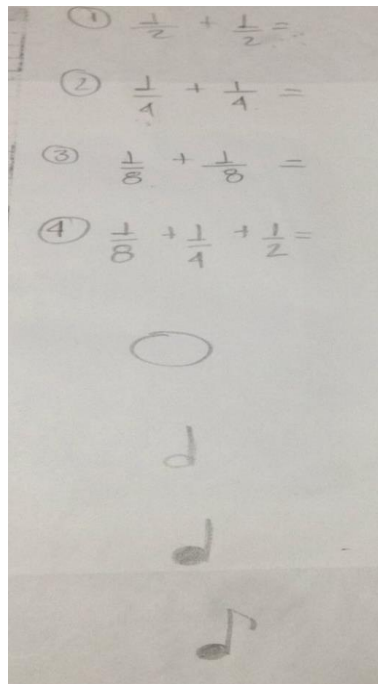 ① 1/2 + 1/2 =
② 1/4 + 1/4 =
③ 1/8 + 1/8 =
④ 1/8 + 1/4 + 1/2 =